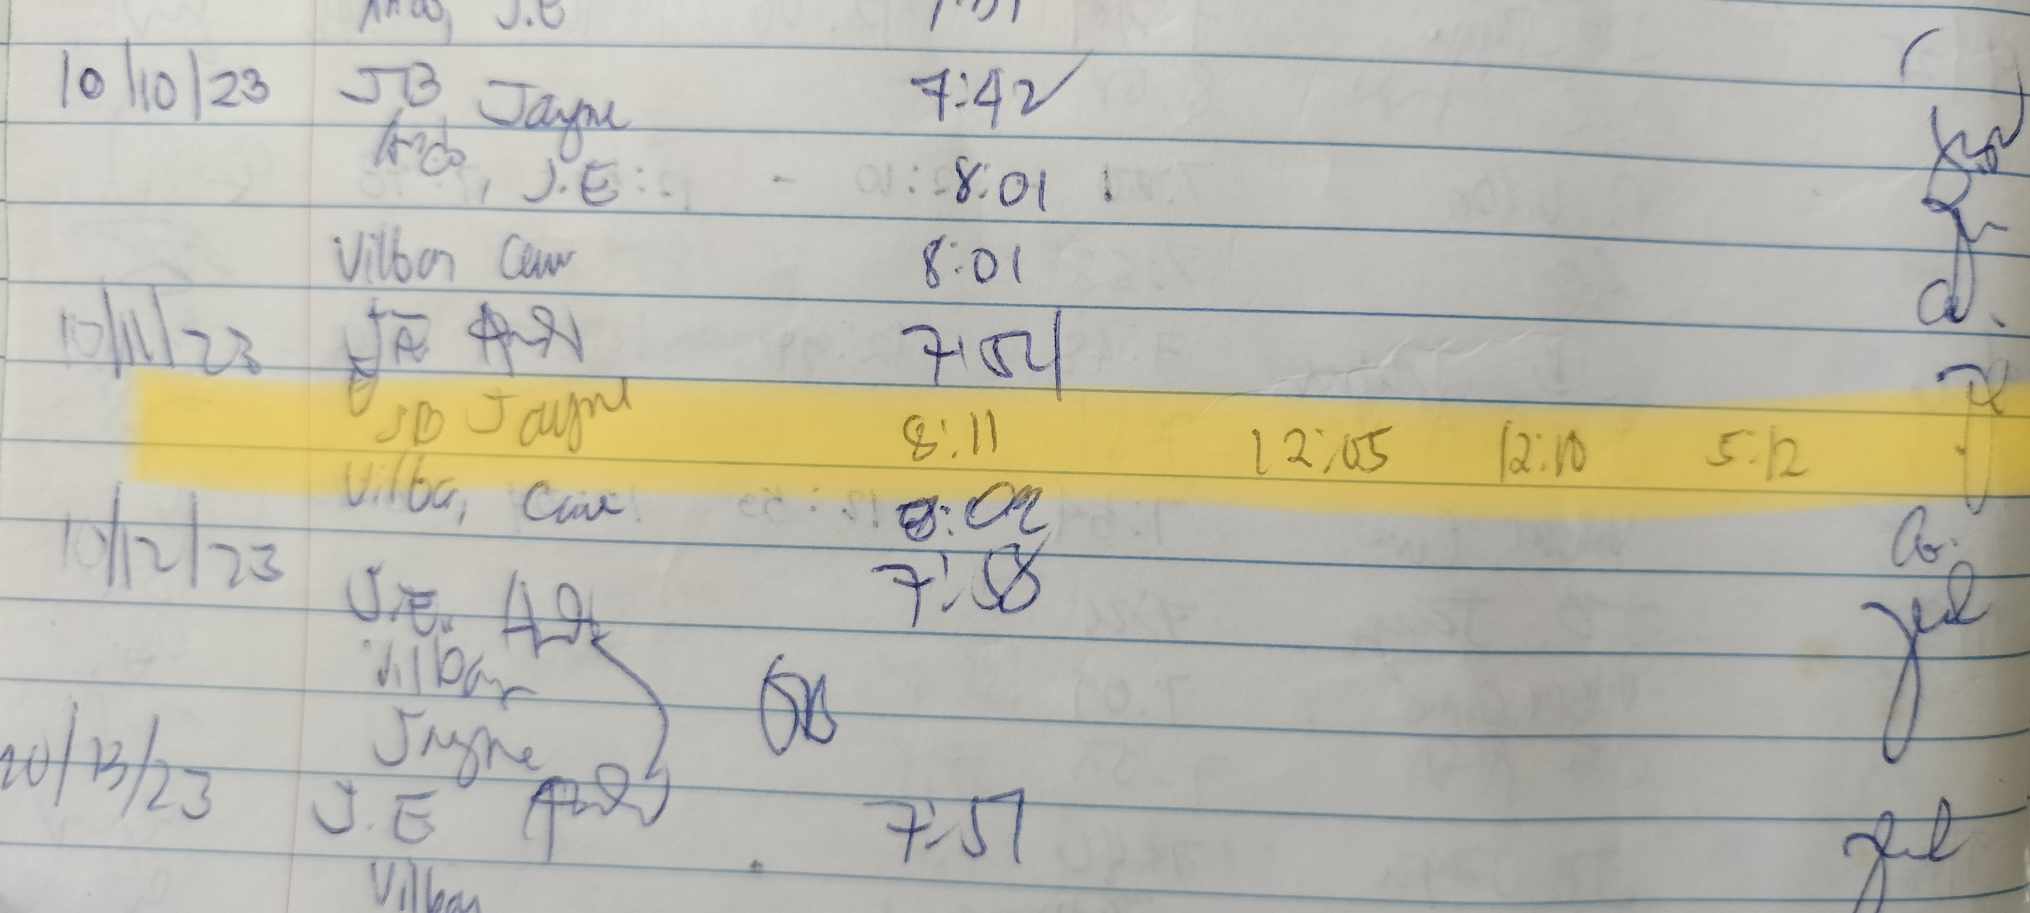 J.E
10/10/23 JB Jayne 7:42
Ando, J.E 8:01
Vilbar 8:01
10/11/23 JE Ando 7:54
JB Jayne 8:11 12:05 12:10 5:12
Vilbar, 8:02
10/12/23 J.E. Ando 7:58
Vilbar
Jayne OB
10/13/23 J.E Ando 7:57
Vilbar